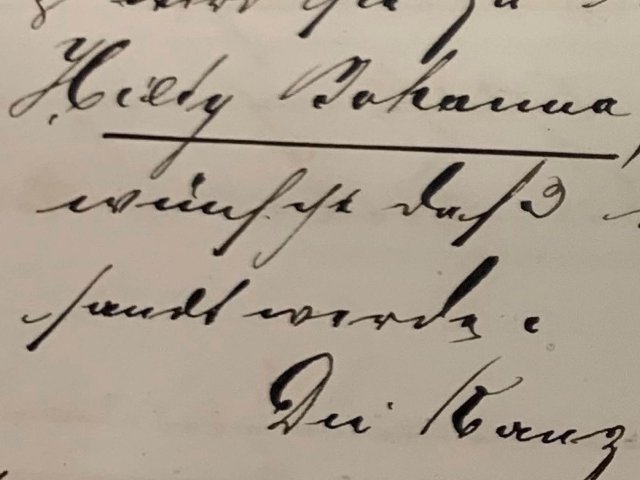 Hilty Johanna,
wünscht daß
sandt werde.
Die Kanz